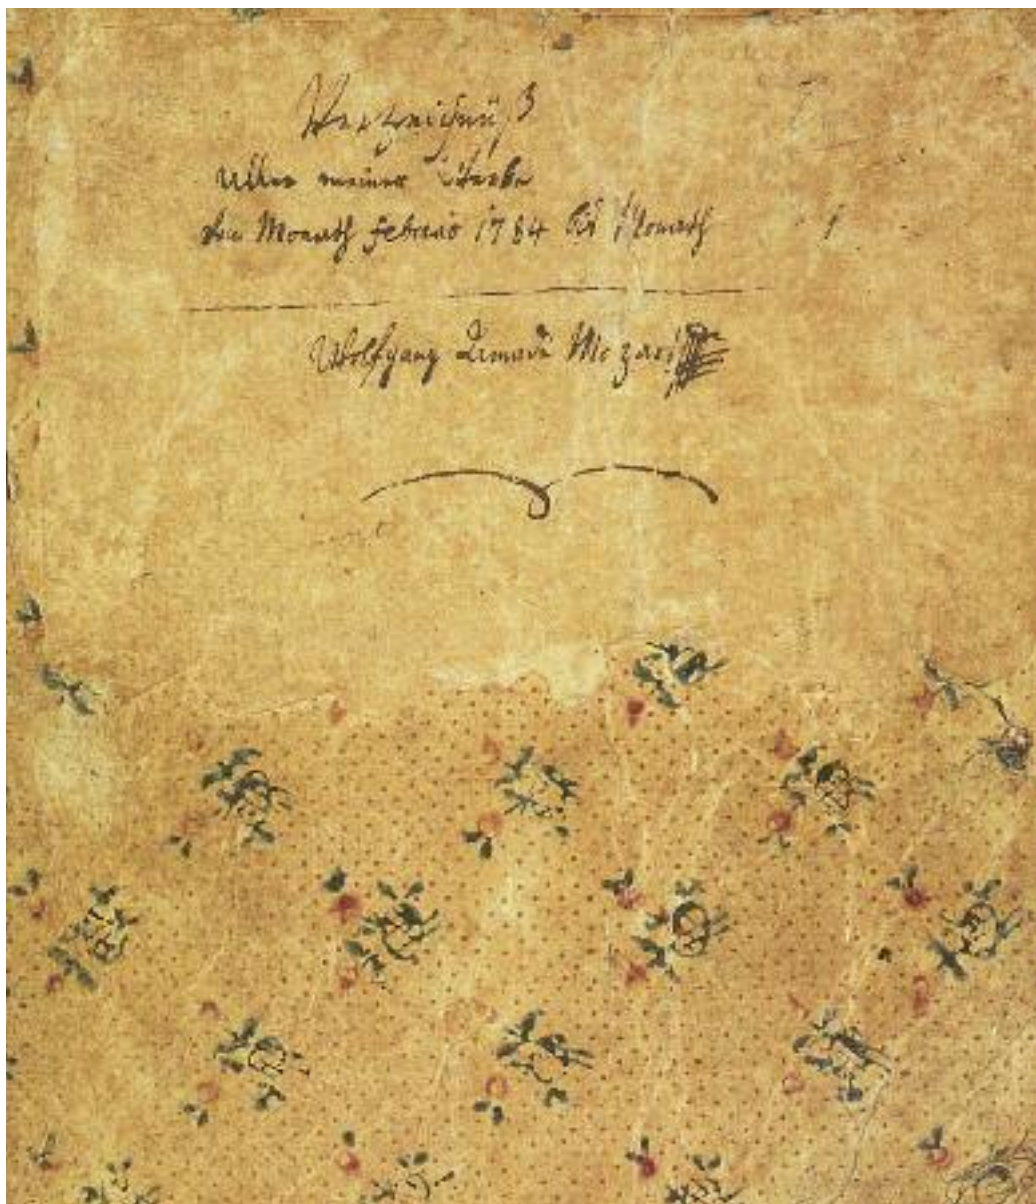 Verzeichnüß
aller meiner Werke
vom Monath febraio 1784 bis Monath
1
Wolfgang Amadé Mozart